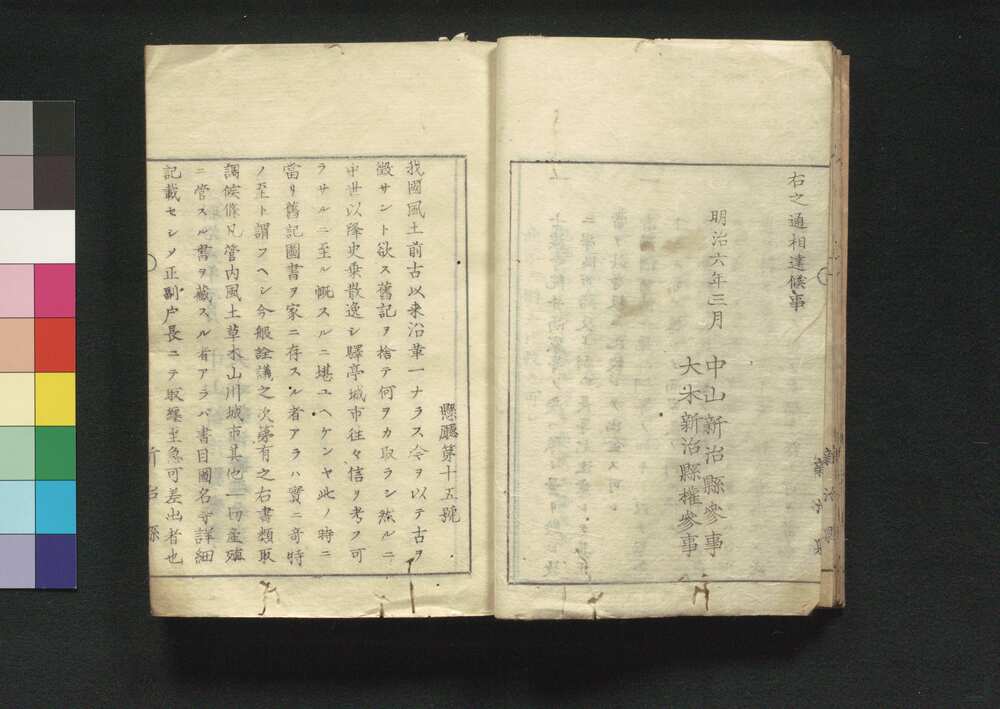 右之通相達候事
明治六年三月
中山新治縣參事
大木新治縣權參事
縣廳第十五號
我國風土前古以来沿革一ナラス今ヲ以テ古ヲ
徴サント欲ス舊記ヲ捨テ何ヲカ取ラン然ルニ
中世以降史乗散逸シ驛亭城市往々信リ考フ可
ラサルニ至ル慨スルニ堪ユヘケンヤ此ノ時ニ
當リ舊記圖書ヲ家ニ存スル者アラハ實ニ奇特
ノ至ト謂フヘシ今般詮議之次第有之右書類取
調候條凡管内風土草木山川城市其他一切産殖
ニ管スル書ヲ藏スル者アラバ書目國名等詳細
記載セシメ正副戸長ニテ取纏至急可差出者也
新治縣